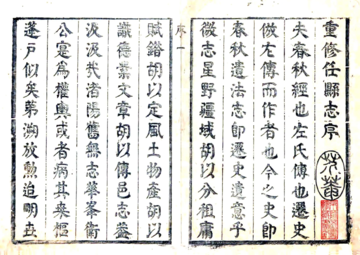 重修任縣志序
夫春秋經也左氏傳也遷史
倣左傳而作者也今之史即
春秋遺法志即遷史遺意乎
微志星野疆域胡以分租庸
序 一
賦鎦胡以定風土物產胡以
識德業文章胡以傳邑志蓋
汲汲矣渚陽舊無志華峯衛
公寔為權輿或者病其朱樞
蓬戶似矣第溯放勲追明堂